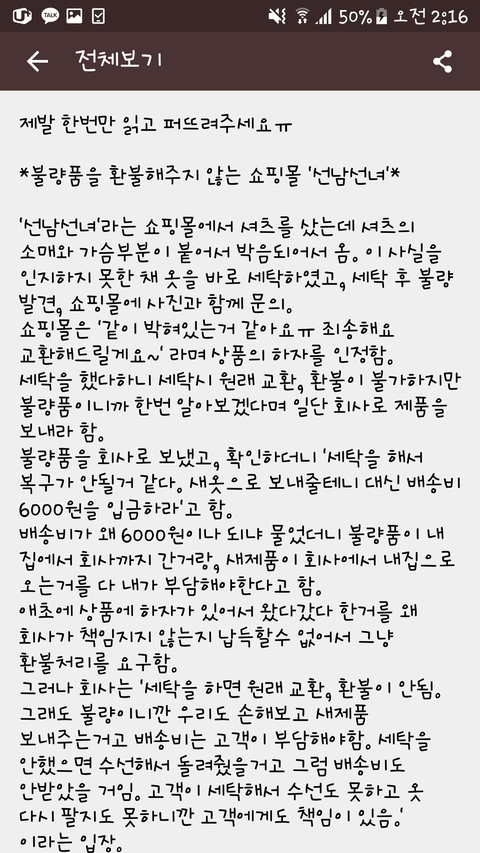 U+ TALK 50% 오전 2:16
전체보기
제발 한번만 읽고 퍼뜨려주세요ㅠ
*불량품을 환불해주지 않는 쇼핑몰 '선남선녀'*
'선남선녀'라는 쇼핑몰에서 셔츠를 샀는데 셔츠의
소매와 가슴부분이 붙어서 박음되어서 옴. 이 사실을
인지하지 못한 채 옷을 바로 세탁하였고, 세탁 후 불량
발견, 쇼핑몰에 사진과 함께 문의.
쇼핑몰은 '같이 박혀있는거 같아요ㅠ 죄송해요
교환해드릴게요~' 라며 상품의 하자를 인정함.
세탁을 했다하니 세탁시 원래 교환, 환불이 불가하지만
불량품이니까 한번 알아보겠다며 일단 회사로 제품을
보내라 함.
불량품을 회사로 보냈고, 확인하더니 '세탁을 해서
복구가 안될거 같다. 새옷으로 보내줄테니 대신 배송비
6000원을 입금하라'고 함.
배송비가 왜 6000원이나 되냐 물었더니 불량품이 내
집에서 회사까지 간거랑, 새제품이 회사에서 내집으로
오는거를 다 내가 부담해야한다고 함.
애초에 상품에 하자가 있어서 왔다갔다 한거를 왜
회사가 책임지지 않는지 납득할수 없어서 그냥
환불처리를 요구함.
그러나 회사는 '세탁을 하면 원래 교환, 환불이 안됨.
그래도 불량이니깐 우리도 손해보고 새제품
보내주는거고 배송비는 고객이 부담해야함. 세탁을
안했으면 수선해서 돌려줬을거고 그럼 배송비도
안받았을 거임. 고객이 세탁해서 수선도 못하고 옷
다시 팔지도 못하니깐 고객에게도 책임이 있음.'
이라는 입장.